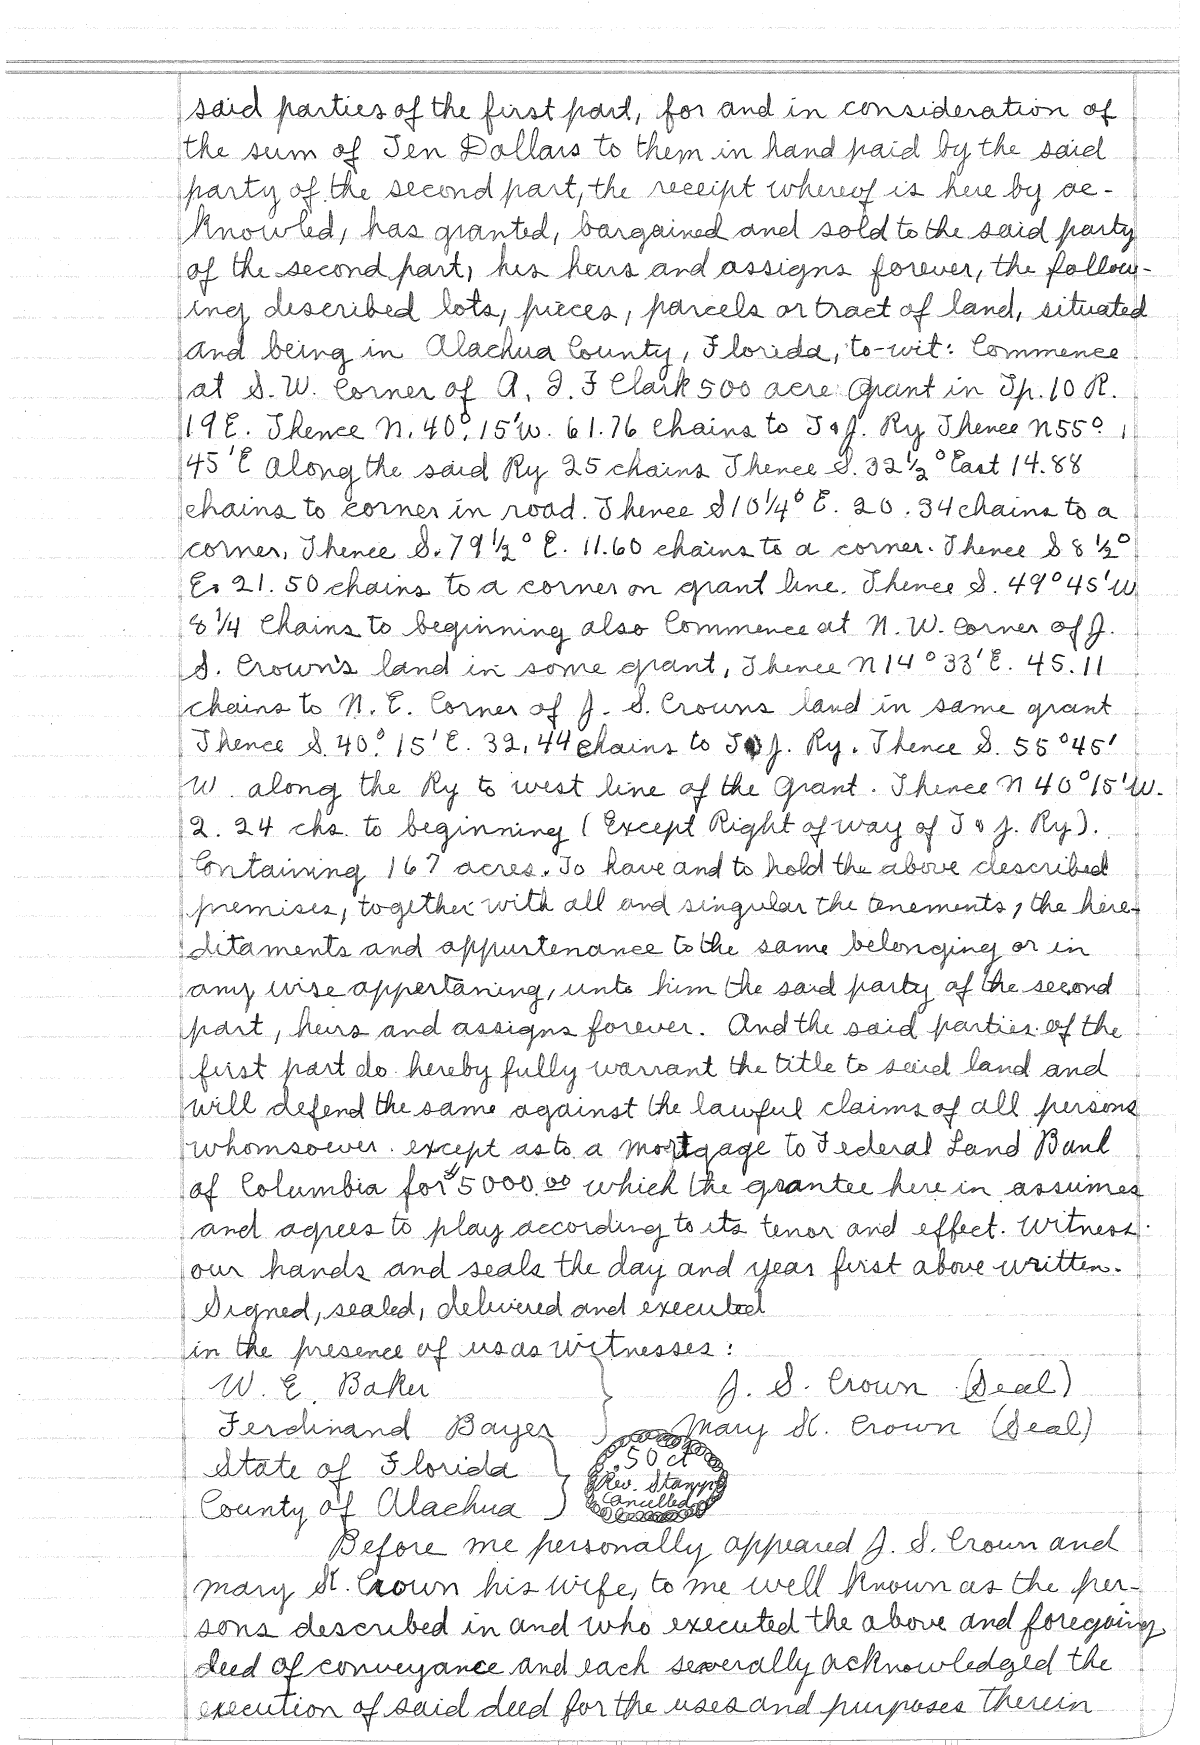 said parties of the first part, for and in consideration of
the sum of Ten Dollars to them in hand paid by the said
party of the second part, the receipt whereof is here by ac-
knowled, has granted, bargained and sold to the said party
of the second part, his heirs and assigns forever, the follow-
ing described lots, pieces, parcels or tract of land, situated
and being in Alachua County, Florida, to-wit: Commence
at S.W. Corner of A. J. F Clark 500 acre Grant in Tp. 10 R.
19 E. Thence N. 40° 15'W. 61.76 Chains to T & J. Ry Thence N55°
45'E Along the said Ry 25 chains Thence S. 32 1/2° East 14.88
chains to corner in road. Thence S10 1/4° E. 20.34 chains to a
corner, Thence S. 79 1/2° E. 11.60 chains to a corner. Thence S 8 1/2°
E. 21.50 chains to a corner on grant line. Thence S. 49° 45'W
8 1/4 Chains to beginning also Commence at N.W. Corner of J.
S. Crown's land in some grant, Thence N 14° 33'E. 45.11
chains to N. E. Corner of J. S. Crowns land in same grant
Thence S. 40° 15'E. 32,44 chains to T & J. Ry. Thence S. 55° 45'
W. along the Ry to west line of the Grant. Thence N 40° 15'W.
2.24 chs. to beginning (Except Right of way of T & J. Ry).
Containing 167 acres. To have and to hold the above described
premises, together with all and singular the tenements, the here-
ditaments and appurtenance to the same belonging or in
any wise appertaning, unto him the said party of the second
part, heirs and assigns forever. And the said parties of the
first part do hereby fully warrant the title to said land and
will defend the same against the lawful claims of all persons
whomsower. except as to a mortgage to Federal Land Bank
of Columbia for $5000.00 which the grantee here in assumes
and agrees to play according to its tenor and effect. Witness
our hands and seals the day and year first above written.
Signed, sealed, delivered and executed
in the presence of us as witnesses:
W. E. Baker } J. S. Crown (Seal)
Ferdinand Bayer } Mary K. Crown (Seal)
State of Florida }
County of Alachua }
.50 ct
Rev. Stamps
Cancelled
Before me personally appeared J. S. Crown and
Mary K. Crown his wife, to me well known as the per-
sons described in and who executed the above and foregoing
deed of conveyance and each severally acknowledged the
execution of said deed for the uses and purposes therein